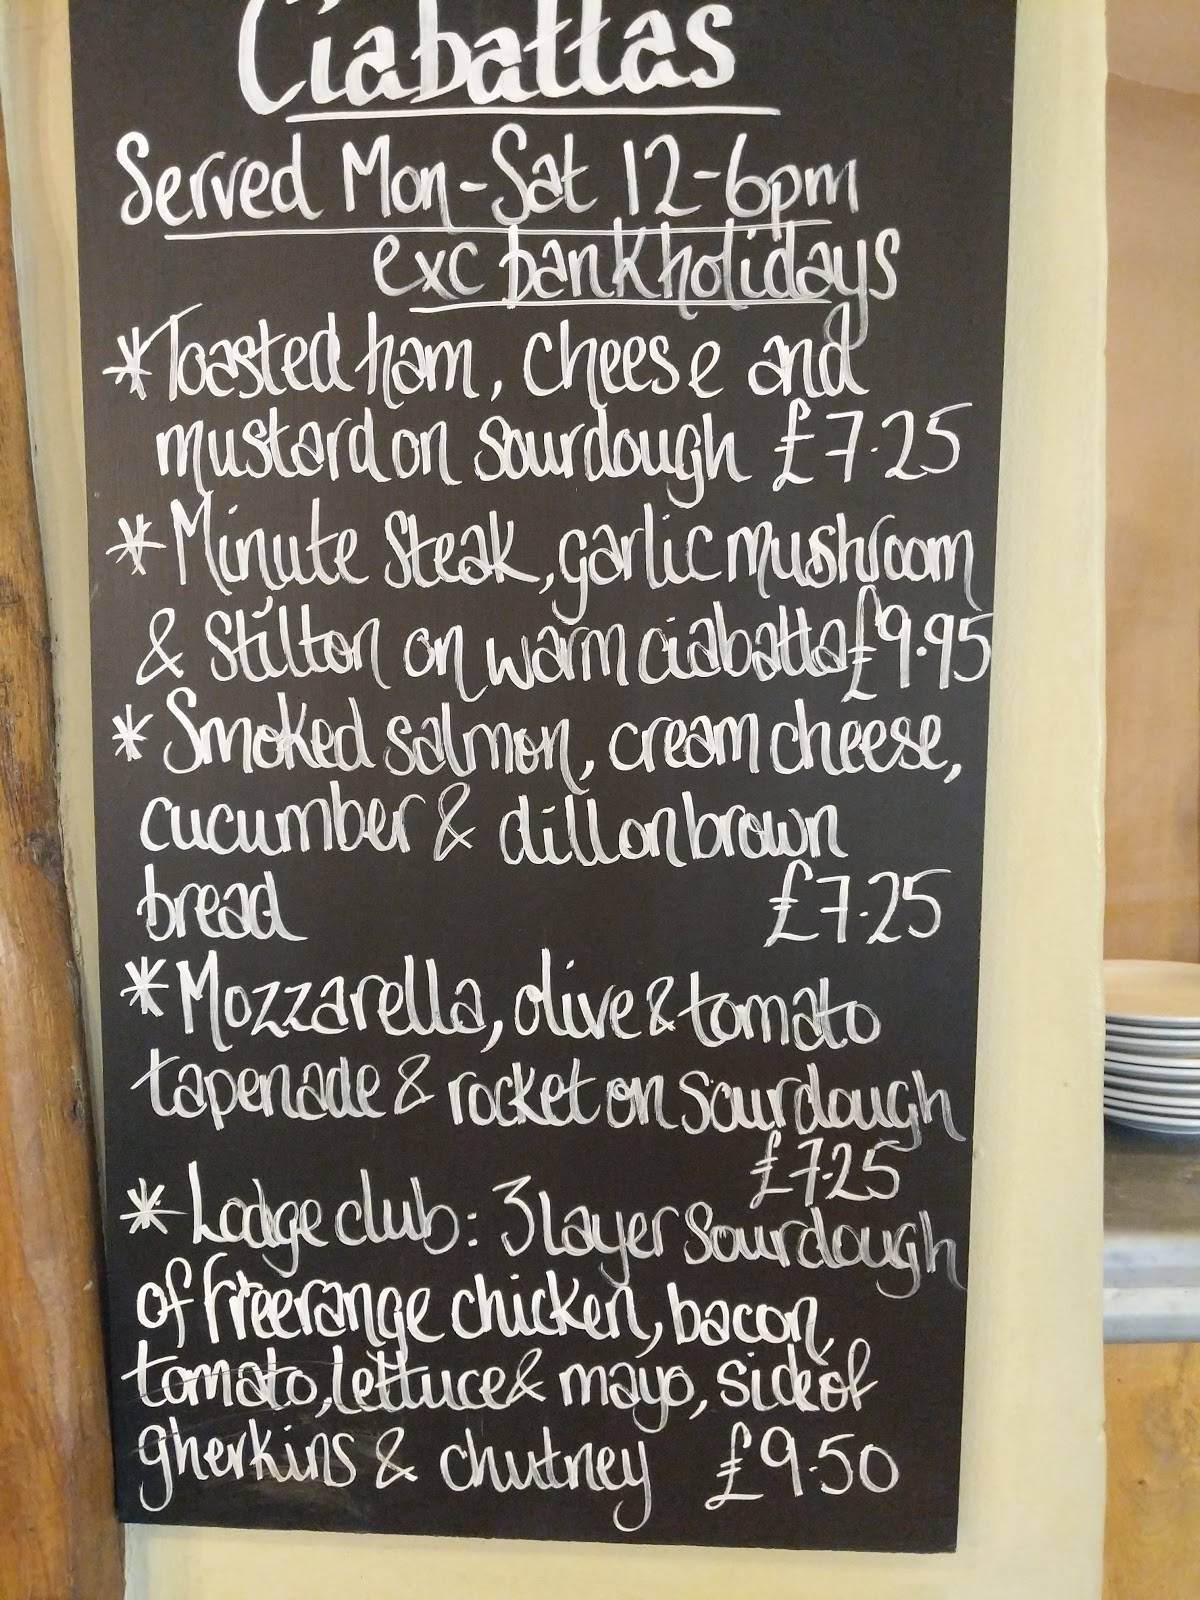 Ciabattas
Served Mon-Sat 12-6pm
exc bankholidays
*Toasted ham, cheese and
mustard on sourdough £7.25
*Minute steak, garlic mushroom
& stilton on warm ciabatta £9.95
*Smoked salmon, cream cheese,
cucumber & dill on brown
bread £7.25
*Mozzarella, olive & tomato
tapenade & rocket on sourdough
£7.25
*Lodge club: 3 layer sourdough
of freerange chicken, bacon,
tomato, lettuce & mayo, side of
gherkins & chutney £9.50